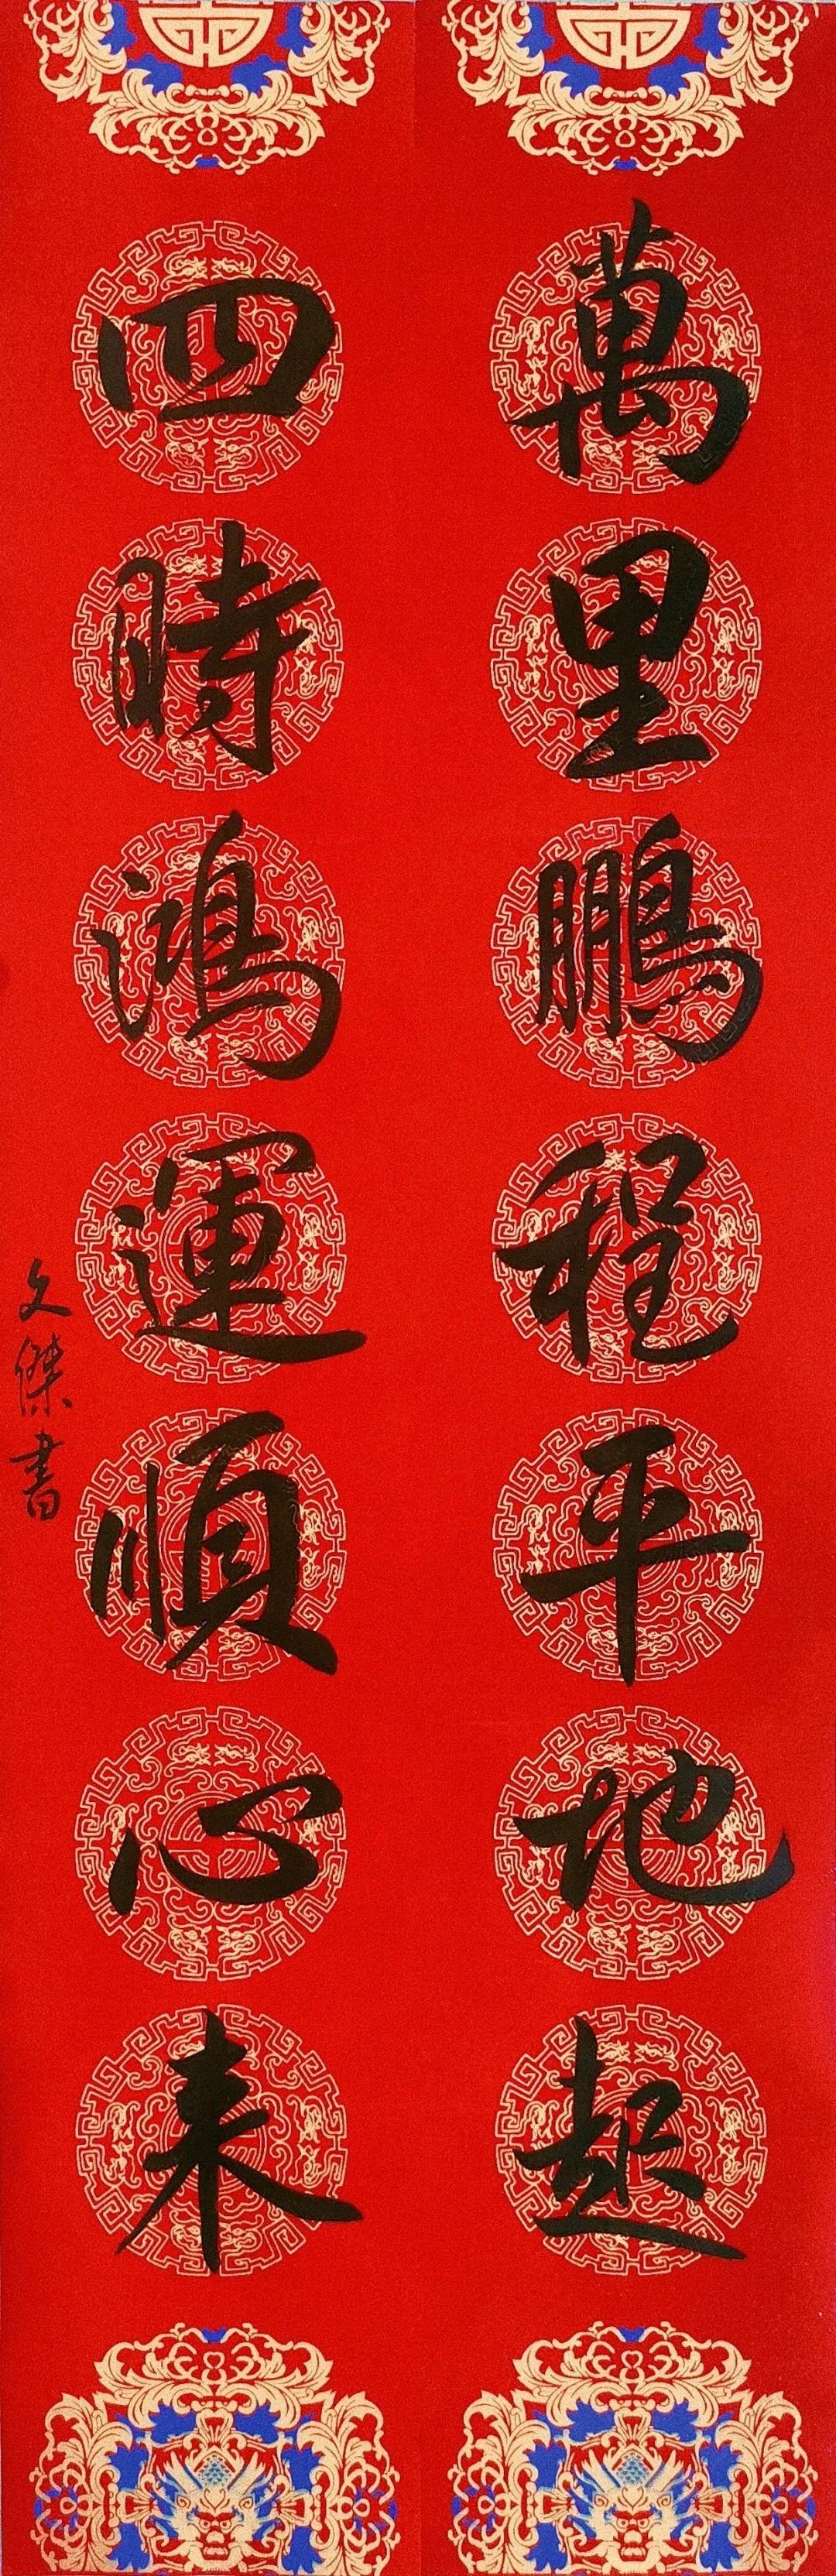 萬里鵬程平地起
四時鴻運順心来
文傑書